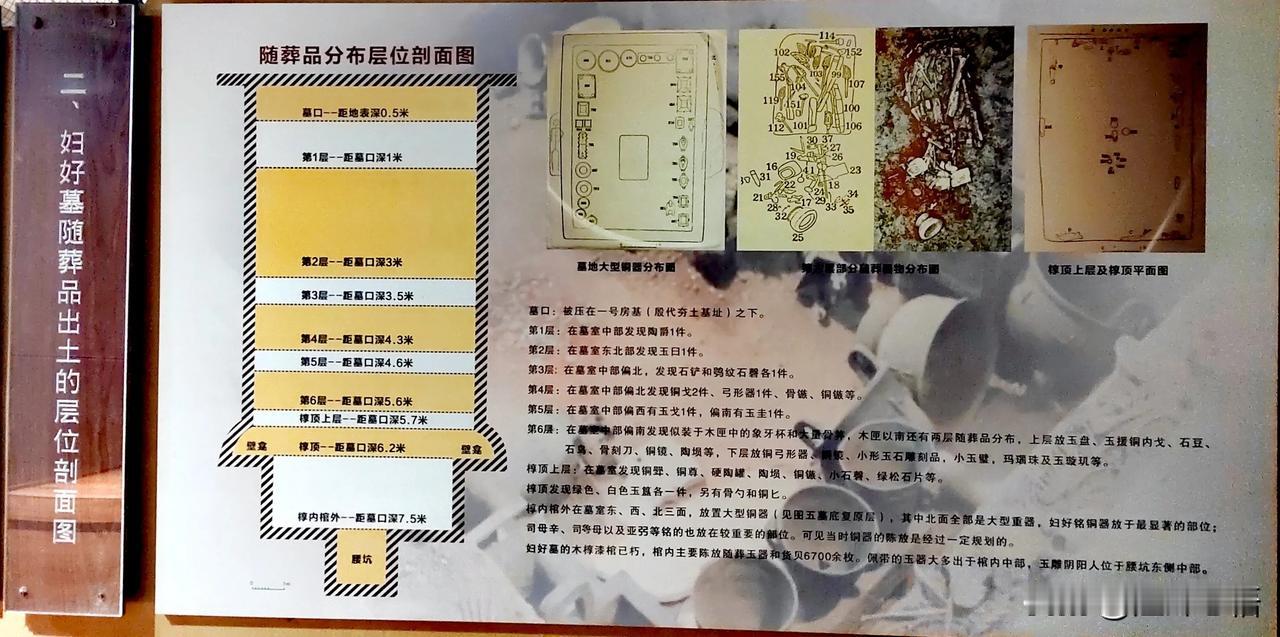 二、妇好墓随葬品出土的层位剖面图
随葬品分布层位剖面图
墓口--距地表深0.5米
第1层--距墓口深1米
第2层--距墓口深3米
第3层--距墓口深3.5米
第4层--距墓口深4.3米
第5层--距墓口深4.6米
第6层--距墓口深5.6米
椁顶上层--距墓口深5.7米
壁龛 椁顶--距墓口深6.2米 壁龛
椁内棺外--距墓口深7.5米
腰坑
114
102 152
103 99
155 104 107
119 151 100
112 101 106
30 37
27
19 26
16 41 23
31 22 18
21 24 34
28 17 29 33 35
32
25
墓地大型铜器分布图
部分随葬器物分布图
椁顶上层及椁顶平面图
墓口：被压在一号房基（殷代夯土基址）之下。
第1层：在墓室中部发现陶爵1件。
第2层：在墓室东北部发现玉臼1件。
第3层：在墓室中部偏北，发现石铲和鸮纹石磬各1件。
第4层：在墓室中部偏北发现铜戈2件、弓形器1件、骨镞、铜镞等。
第5层：在墓室中部偏西有玉戈1件，偏南有玉圭1件。
第6层：在墓室中部偏南发现似装于木匣中的象牙杯和大量骨笄，木匣以南还有两层随葬品分布，上层放玉盘、玉援铜内戈、石豆、
石鸟、骨刻刀、铜镜、陶埙等，下层放铜弓形器、铜镜、小形玉石雕刻品，小玉壁，玛瑙珠及玉璇玑等。
椁顶上层：在墓室发现铜斝、铜尊、硬陶罐、陶埙、铜镞、小石磬、绿松石片等。
椁顶发现绿色、白色玉簋各一件，另有骨勺和铜匕。
椁内棺外在墓室东、西、北三面，放置大型铜器（见图五墓底复原层），其中北面全部是大型重器，妇好铭铜器放于最显著的部位；
司母辛、司㚸母以及亚弜等铭的也放在较重要的部位。可见当时铜器的陈放是经过一定规划的。
妇好墓的木椁漆棺已朽，棺内主要陈放随葬玉器和货贝6700余枚。佩带的玉器大多出于棺内中部，玉雕阴阳人位于腰坑东侧中部。